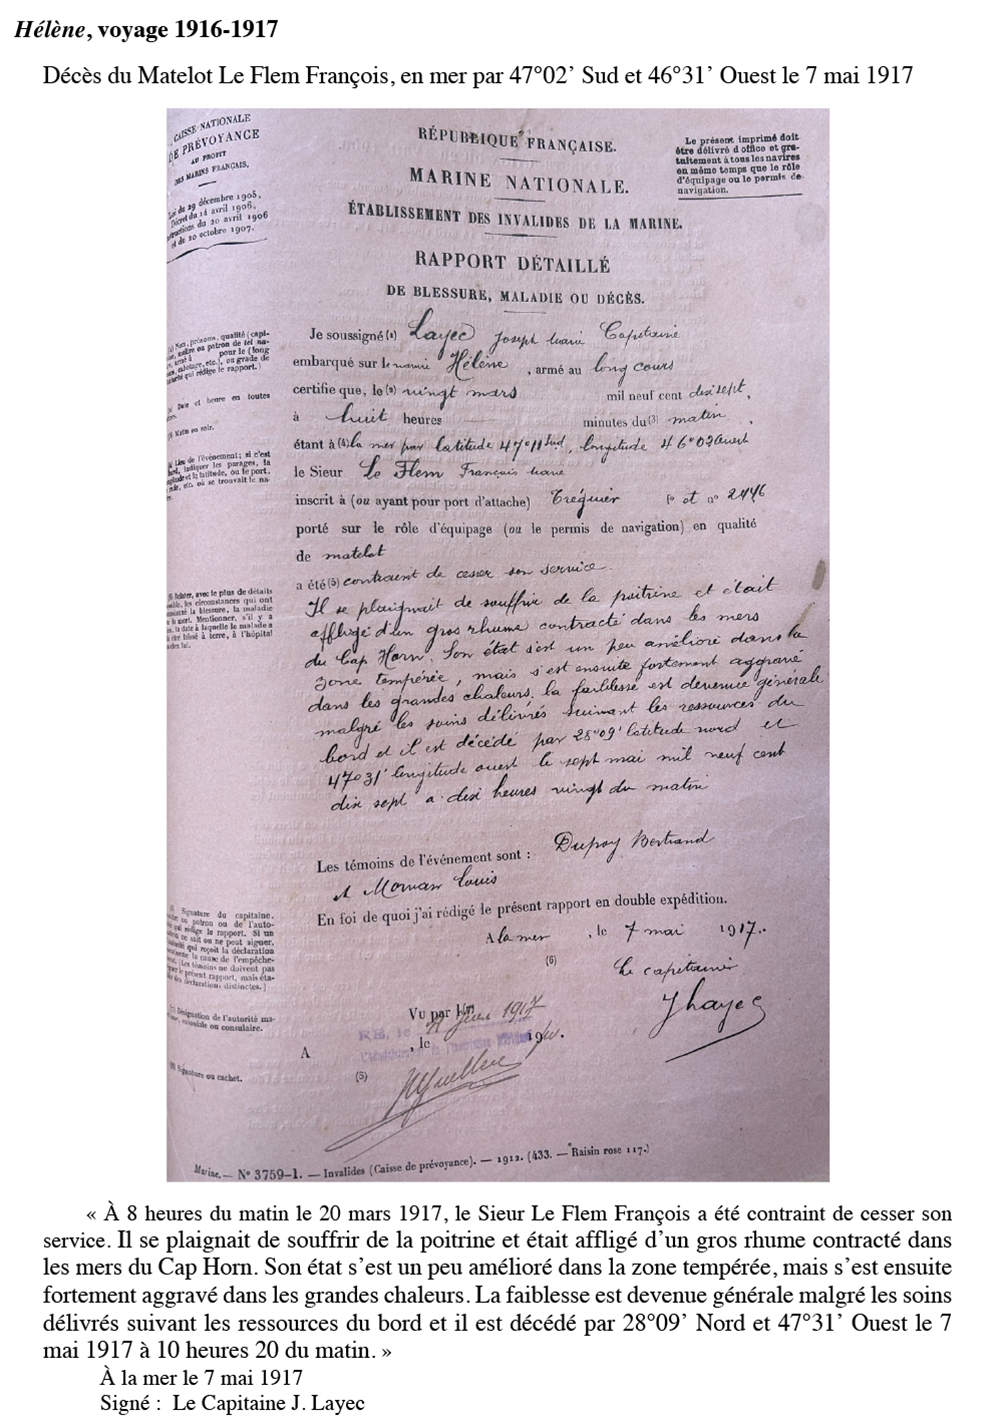 Hélène, voyage 1916-1917
Décès du Matelot Le Flem François, en mer par 47°02’ Sud et 46°31’ Ouest le 7 mai 1917
CAISSE NATIONALE
DE PRÉVOYANCE
AU PROFIT
DES MARINS FRANÇAIS.
Loi du 29 décembre 1905,
Décret du 14 avril 1906,
du 20 avril 1906
et du 20 octobre 1907.
RÉPUBLIQUE FRANÇAISE.
MARINE NATIONALE.
ÉTABLISSEMENT DES INVALIDES DE LA MARINE.
RAPPORT DÉTAILLÉ
DE BLESSURE, MALADIE OU DÉCÈS.
Le présent imprimé doit
être délivré d'office et gra-
tuitement à tous les navires
en même temps que le rôle
d'équipage ou le permis de
navigation.
Nom, prénoms, qualité (capi-
maître ou patron de tel na-
armé à pour le (long
cabotage, etc.), ou grade de
qui rédige le rapport.)
Date et heure en toutes
Matin ou soir.
Lieu de l'événement; si c'est
indiquer les parages, la
et la latitude, ou le port,
etc. où se trouvait le na-
Relater, avec le plus de détails
les circonstances qui ont
la blessure, la maladie
la mort. Mentionner, s'il y a
la date à laquelle le malade a
été laissé à terre, à l'hôpital
Signature du capitaine.
patron ou de l'auto-
qui rédige le rapport. Si un
ne sait ou ne peut signer,
qui reçoit la déclaration
la cause de l'empêche-
(Les témoins ne doivent pas
le présent rapport, mais éta-
des déclarations distinctes.)
Désignation de l'autorité ma-
ou consulaire.
Signature ou cachet.
Je soussigné (1) Layec Joseph Marie Capitaine
embarqué sur le navire Hélène, armé au long cours
certifie que, le (2) vingt mars mil neuf cent dix sept,
à huit heures minutes du (3) matin,
étant à (4) la mer par latitude 47°11 Sud, longitude 46°02 Ouest
le Sieur Le Flem François Marie
inscrit à (ou ayant pour port d'attache) Tréguier f° et n° 2446
porté sur le rôle d'équipage (ou le permis de navigation) en qualité
de matelot
a été (5) contraint de cesser son service.
Il se plaignait de souffrir de la poitrine et était
affligé d'un gros rhume contracté dans les mers
du Cap Horn. Son état s'est un peu amélioré dans la
zone tempérée, mais s'est ensuite fortement aggravé
dans les grandes chaleurs, la faiblesse est devenue générale
malgré les soins délivrés suivant les ressources du
bord et il est décédé par 28°09' latitude nord et
47°31' longitude ouest le sept mai mil neuf cent
dix sept a dix heures vingt du matin
Les témoins de l'événement sont : Dupoy Bertrand
et Morvan Louis
En foi de quoi j'ai rédigé le présent rapport en double expédition.
A la mer, le 7 mai 1917.
(6) Le capitaine
J Layec
Vu par
A , le 19
(5)
Marine. — N° 3759-1. — Invalides (Caisse de prévoyance). — 1912. (433. — Raisin rose 117.)
« À 8 heures du matin le 20 mars 1917, le Sieur Le Flem François a été contraint de cesser son
service. Il se plaignait de souffrir de la poitrine et était affligé d’un gros rhume contracté dans
les mers du Cap Horn. Son état s’est un peu amélioré dans la zone tempérée, mais s’est ensuite
fortement aggravé dans les grandes chaleurs. La faiblesse est devenue générale malgré les soins
délivrés suivant les ressources du bord et il est décédé par 28°09’ Nord et 47°31’ Ouest le 7
mai 1917 à 10 heures 20 du matin. »
À la mer le 7 mai 1917
Signé : Le Capitaine J. Layec